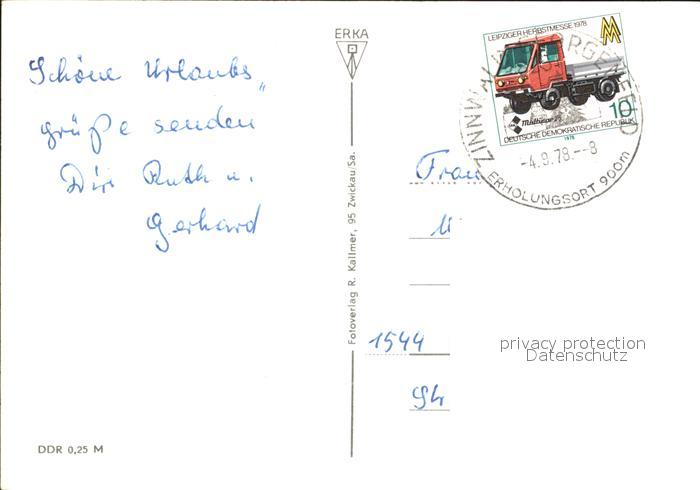 Schöne Urlaubs„
grüße senden
Dir Ruth u.
Gerhard
DDR 0,25 M
ERKA
Fotoverlag R. Kallmer, 95 Zwickau/Sa.
LEIPZIGER HERBSTMESSE 1978
MM
Multicar 25
10
DEUTSCHE DEMOKRATISCHE REPUBLIK
1978
-4.9.78.--8
ERHOLUNGSORT 900m
Frau
1544
privacy protection
Datenschutz